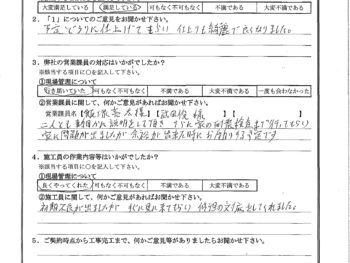 大変満足している 満足している 可もなく不可もなく 不満である 大変不満である
2.「1」についてのご意見をお聞かせ下さい。
下立どうりに仕上げてもらい 仕上りも綺麗で良くなりました。
3. 弊社の営業課員の対応はいかがでしたか?
※該当する項目に○を記入して下さい。
①現場管理について
行き届いていた 可もなく不可もなく 不満である 大変不満である 一度も会わなかった
②営業課員に関して、何かご意見があればお聞かせ下さい。
営業課員名【飯塚 様】【武田俊 様】
二人とも 説明をして頂き すぐに家の耐震検査まで行ってもらい
家に問題が出ましたが 余裕が出来た時にお願りする予定です
4. 施工員の作業内容等はいかがでしたか?
※該当する項目に○を記入して下さい。
①現場管理について
良くやってくれた 可もなく不可もなく 不満である 大変不満である
②施工員に関して、何かご意見があればお聞かせ下さい。
初期不良が出ましたが すぐに見に来てもらい 修理の対応をしてくれました。
5. ご契約時点から工事完工まで、何かご意見等がありましたらお聞かせ下さい。